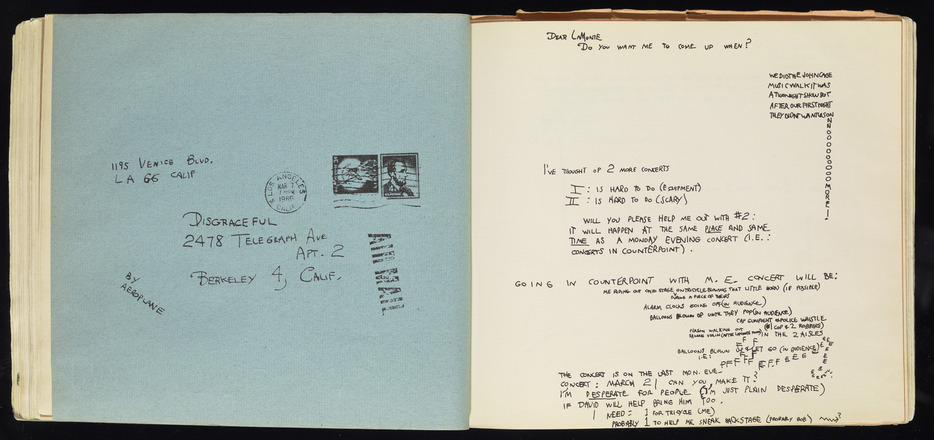 1195 VENICE BLVD.
LA 66 CALIF
LOS ANGELES
MAR 7
1960
CALIF.
DISGRACEFUL
2478 TELEGRAPH AVE
APT. 2
BERKELEY 4, CALIF.
BY
AEROPLANE
AIR MAIL
DEAR LAMONTE
DO YOU WANT ME TO COME UP WHEN?
WE DID THE JOHN CAGE
MUSIC WALK IT WAS
A TWO NIGHT SHOW BUT
AFTER OUR FIRST NIGHT
THEY DIDNT WANT US ON
I'VE THOUGHT OF 2 MORE CONCERTS
I : IS HARD TO DO (EQUIPMENT)
II : IS HARD TO DO (SCARY)
WILL YOU PLEASE HELP ME OUT WITH #2:
IT WILL HAPPEN AT THE SAME PLACE AND SAME
TIME AS A MONDAY EVENING CONCERT (I.E.:
CONCERTS IN COUNTERPOINT).
GOING IN COUNTERPOINT WITH M. E. CONCERT WILL BE:
ME RIDING OUT ON STAGE ON TRICYCLE BLOWING THAT LITTLE HORN (IF POSSIBLE)
DURING A PIECE OF THEIRS
ALARM CLOCKS GOING OFF (IN AUDIENCE)
BALLOONS BLOWN UP UNTIL THEY POP (IN AUDIENCE)
POLICE WHISTLE
(1 COP & 2 ROBBERS)
PERSON WALKING OUT
IN THE 2 AISLES
BALLOONS BLOWN UP & LET GO (IN AUDIENCE)
I.E.:
THE CONCERT IS ON THE LAST MON. EVE.
CONCERT: MARCH 21 CAN YOU MAKE IT?
I'M DESPERATE FOR PEOPLE (I'M JUST PLAIN DESPERATE)
IF DAVID WILL HELP BRING HIM TOO.
I NEED: 1 FOR TRICYCLE (ME)
PROBABLY 1 TO HELP ME SNEAK BACKSTAGE